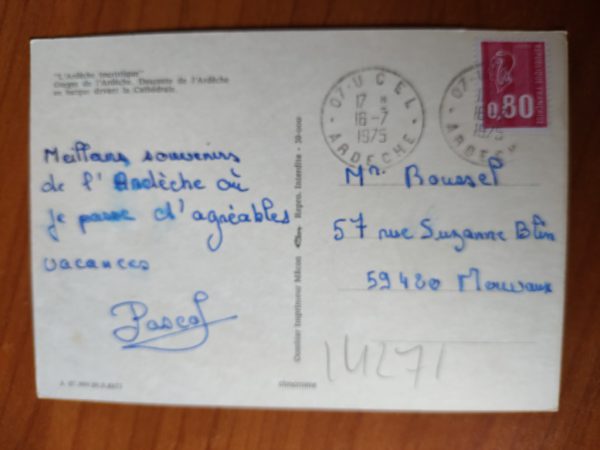 "L'Ardèche touristique"
Gorges de l'Ardèche. Descente de l'Ardèche
en barque devant la Cathédrale.
Meillans souvenirs
de l'Ardèche où
je passe d'agréables
vacances
Pascal
07-UCEL
17 H
16-7
1975
ARDECHE
07-U
16
1975
ARDECH
0,80
Mr. Boussel
57 rue Suzanne Blin
59420 Mouvaux
14271
Combier Imprimeur Mâcon
Repro. Interdite -